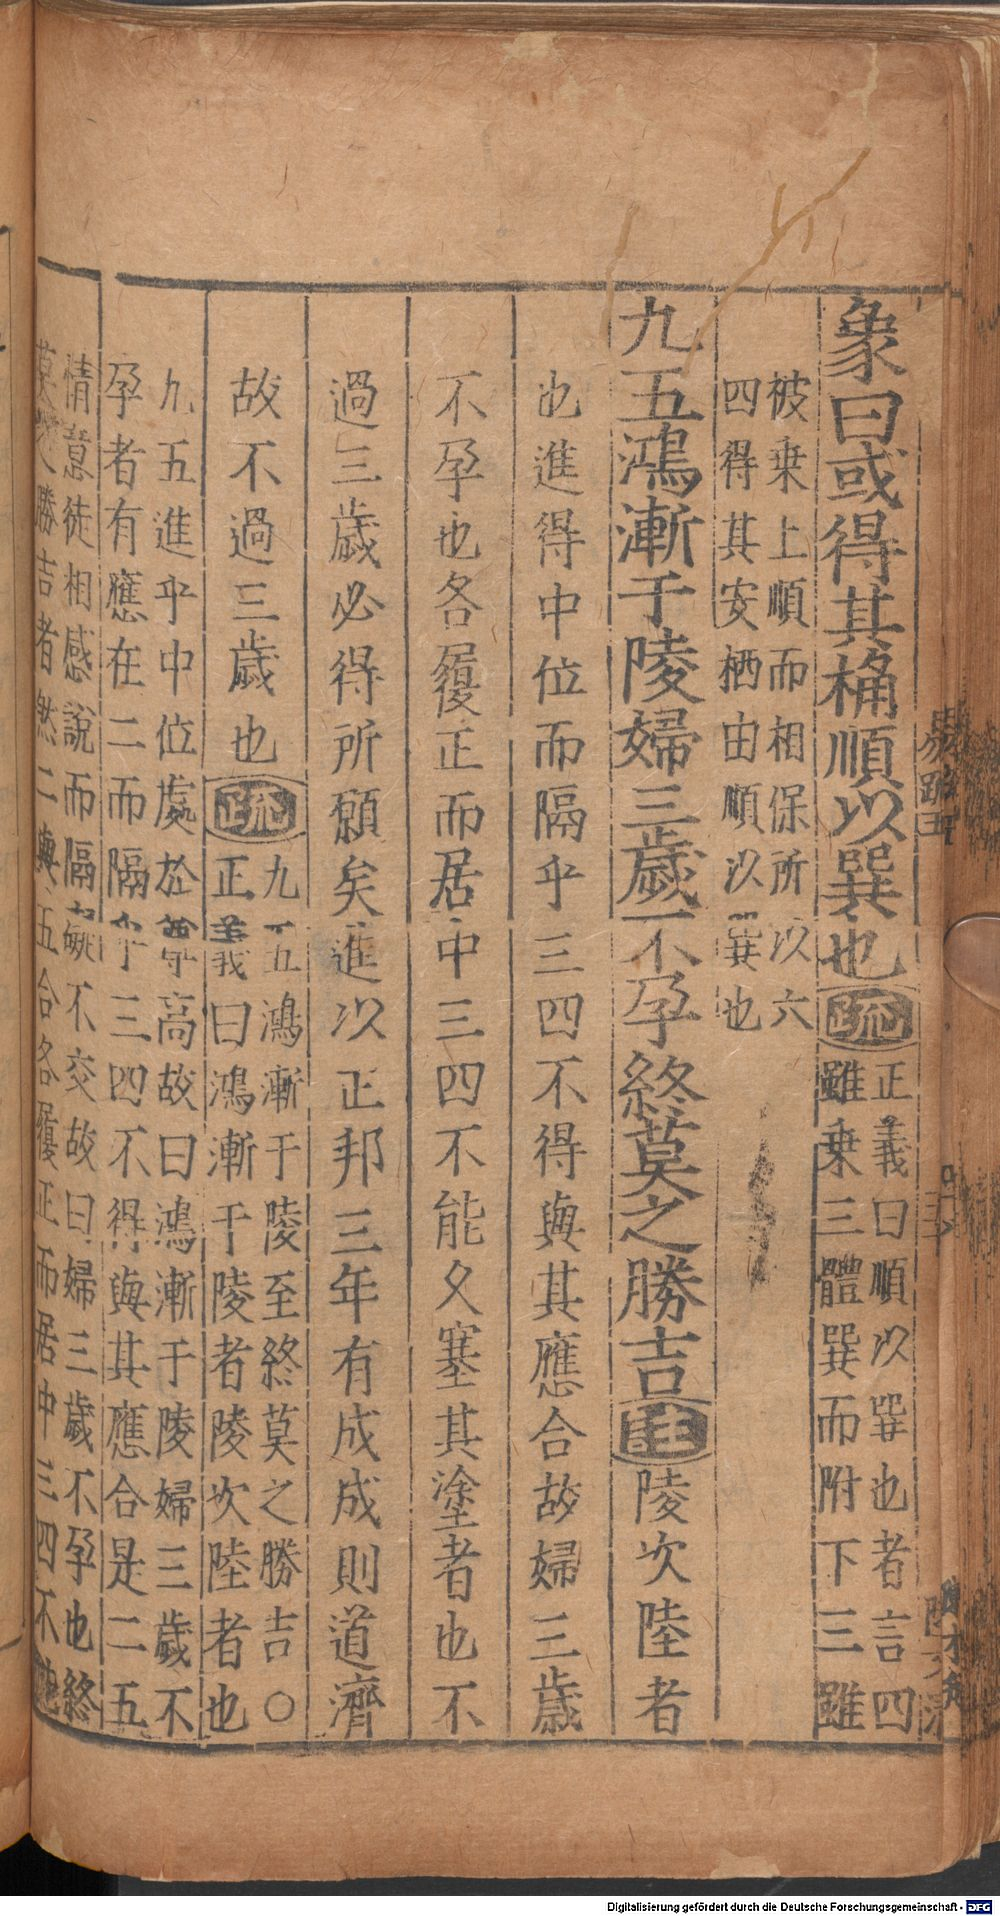 象曰或得其桷順以巽也疏
正義曰順以巽也者言四
雖乗三體巽而附下三雖
被乗上順而相保所以六
四得其安栖由順以巽也
九五鴻漸于陵婦三歲不孕終莫之勝吉註陵次陸者
也進得中位而隔乎三四不得與其應合故婦三歲
不孕也各履正而居中三四不能久塞其塗者也不
過三歲必得所願矣進以正邦三年有成成則道濟
故不過三歲也疏
九五鴻漸于陵至終莫之勝吉○
正義曰鴻漸于陵者陵次陸者也
九五進乎中位處於尊高故曰鴻漸于陵婦三歲不
孕者有應在二而隔乎三四不得與其應合是二五
情意徒相感說而隔礙不交故曰婦三歲不孕也終
莫之勝吉者然二與五合各履正而居中三四不
易疏五
Digitalisierung gefördert durch die Deutsche Forschungsgemeinschaft - DFG